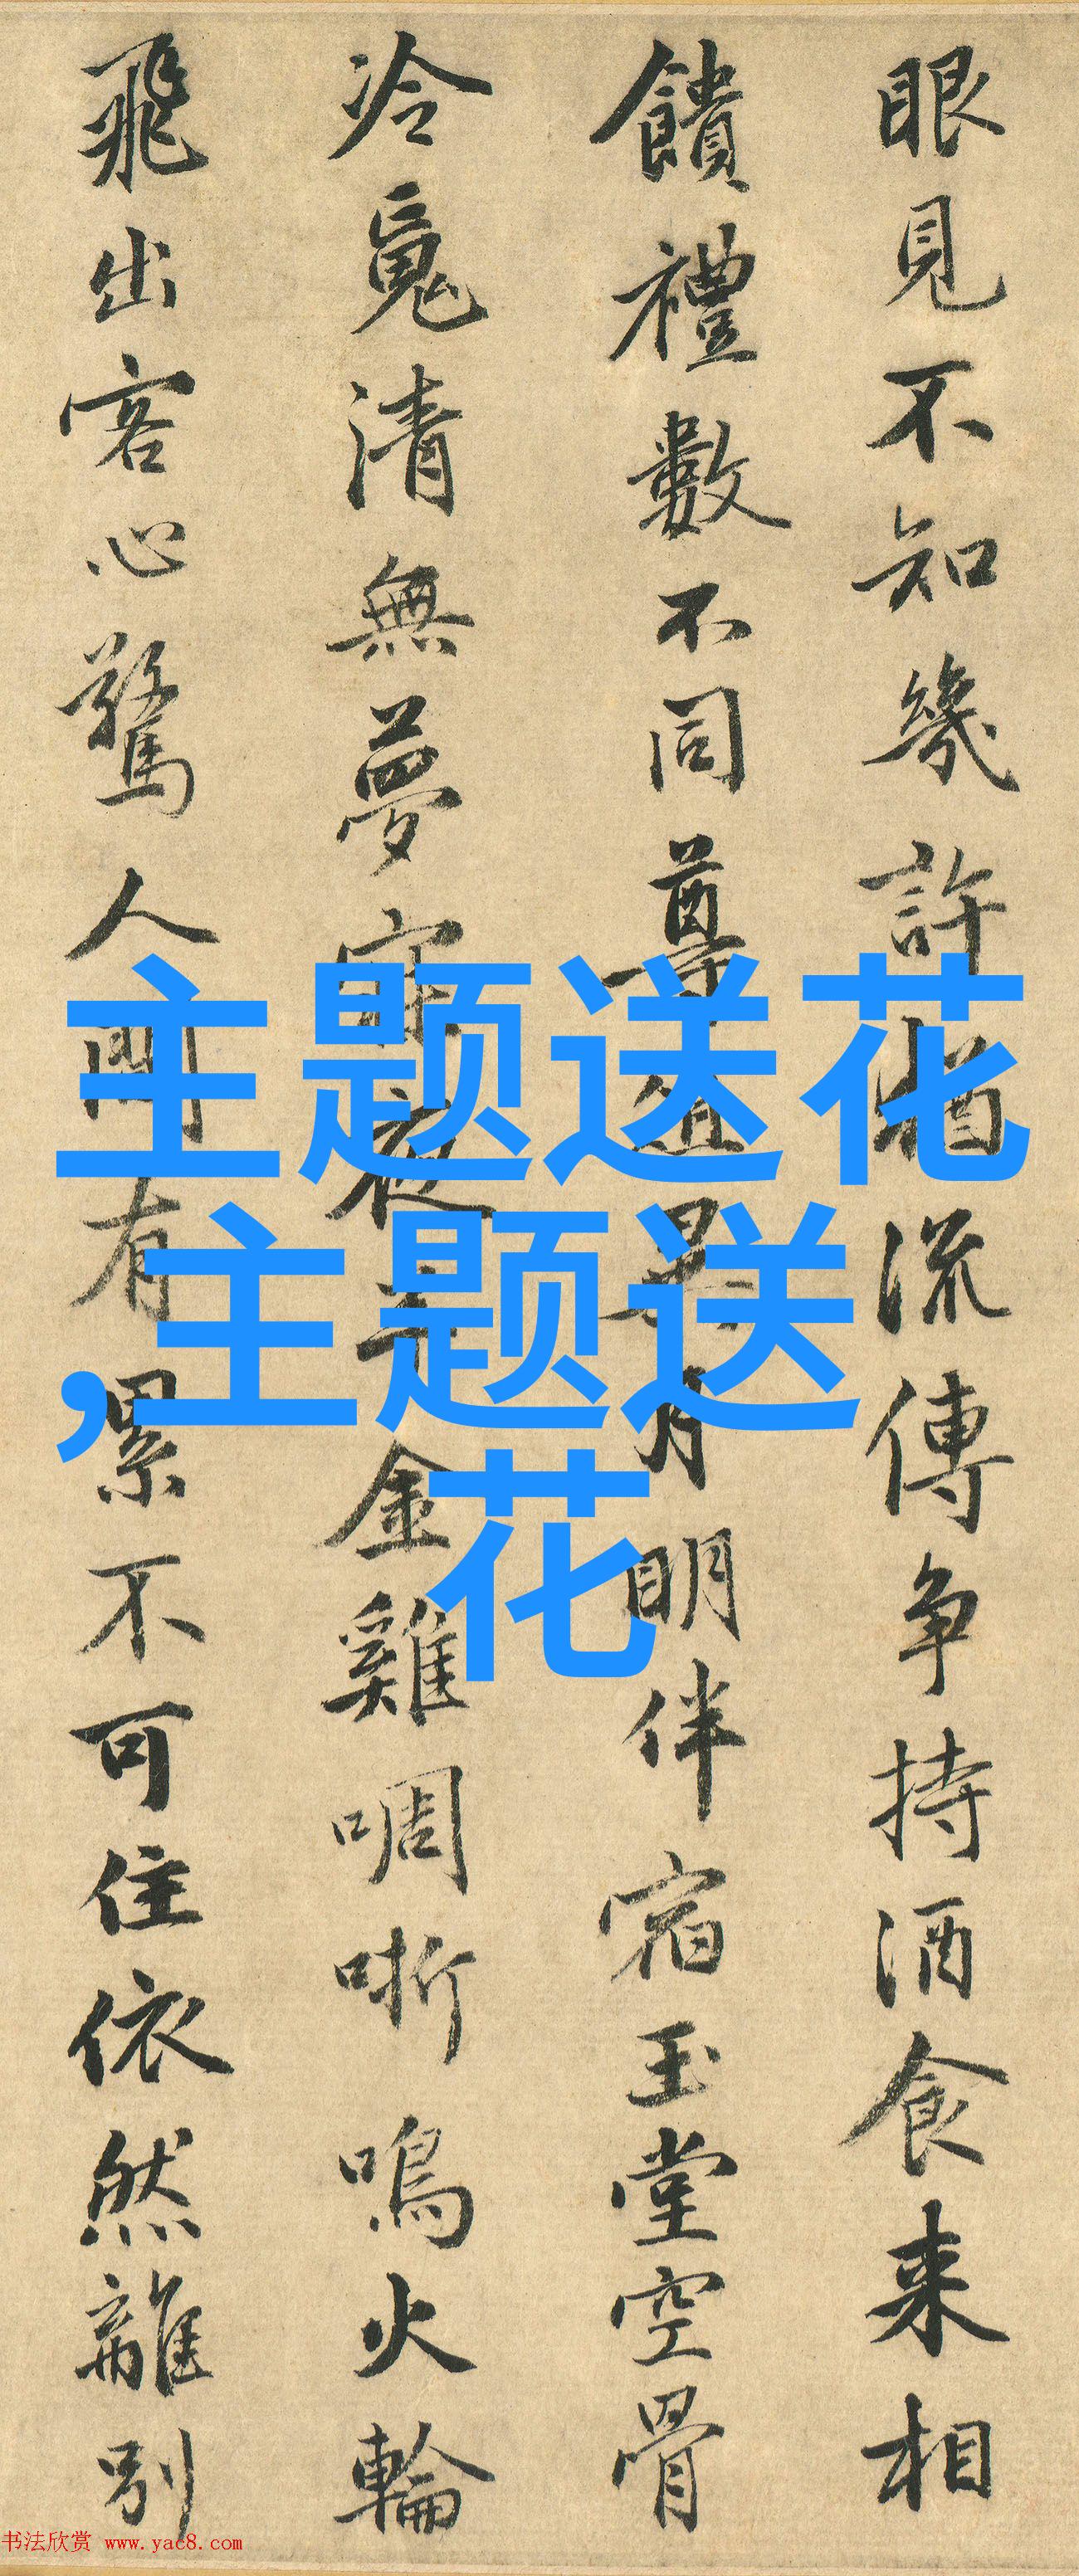 眼見不知幾許猶流傳争持酒食来相
饋禮數不同尊俎異月明伴宿玉堂空骨
冷魂清無夢寐夜半金雞啁哳鳴火輪
飛出客心驚人間有累不可住依然離別
主题送花
,主题送
花
书法欣赏 www.yac8.com